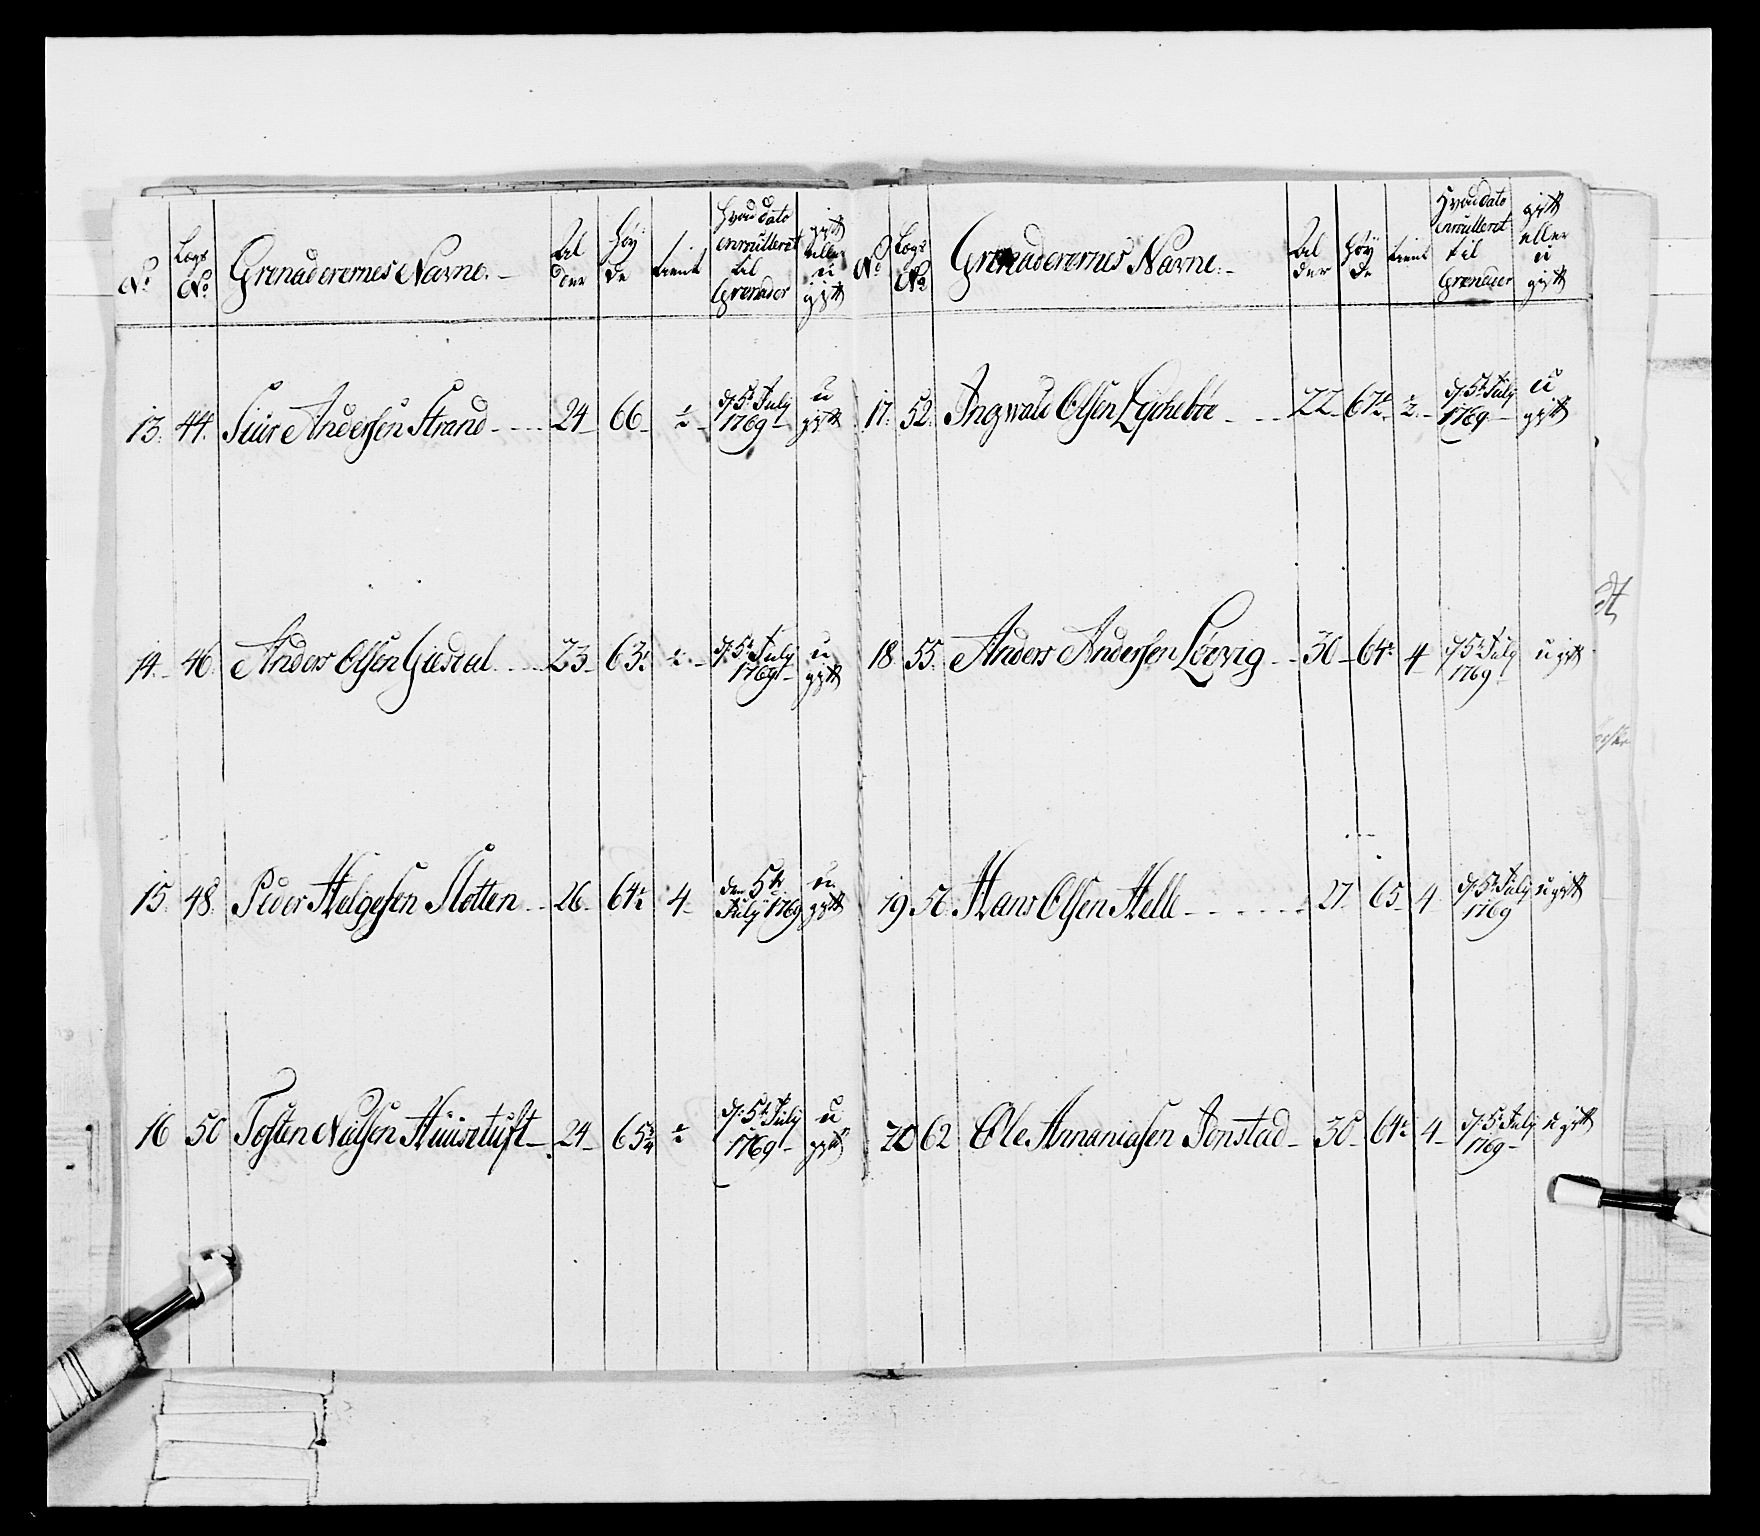 No
Lægs No
Grenaderernes Navne.
Al der
Høy de
tient
Hvad dato enroulleret til Grenader
gift eller u gift
13. 44. Siur Andersen Strand 24 66 ½ d: 5t July 1769 u gift
14. 46. Anders Olsen Giesdal 23 63½ ½ d: 5t July 1769 u gift
15. 48. Peder Helgesen Slotten 26 64½ 4 den 5te July 1769 u gift
16 50 Tosten Nielsen Huusetuft 24 65¾ ½ d: 5t July 1769 u gift
No
Lægs No
Grenaderernes Navne.
Al der
Høy de
tient
Hvad dato enroulleret til Grenader
gift eller u gift
17. 52. Ingwald Olsen Lychebøe 22 67½ ½ d: 5t July 1769 u gift
18. 55. Anders Andersen Löevig 30 64½ 4 d: 5t July 1769 u gift
19 56 Hans Olsen Helle 27 65 4 d: 5t July 1769 u gift
20 62 Ole Annaniasen Jonstad 30 64½ 4 d: 5t July 1769 u gift